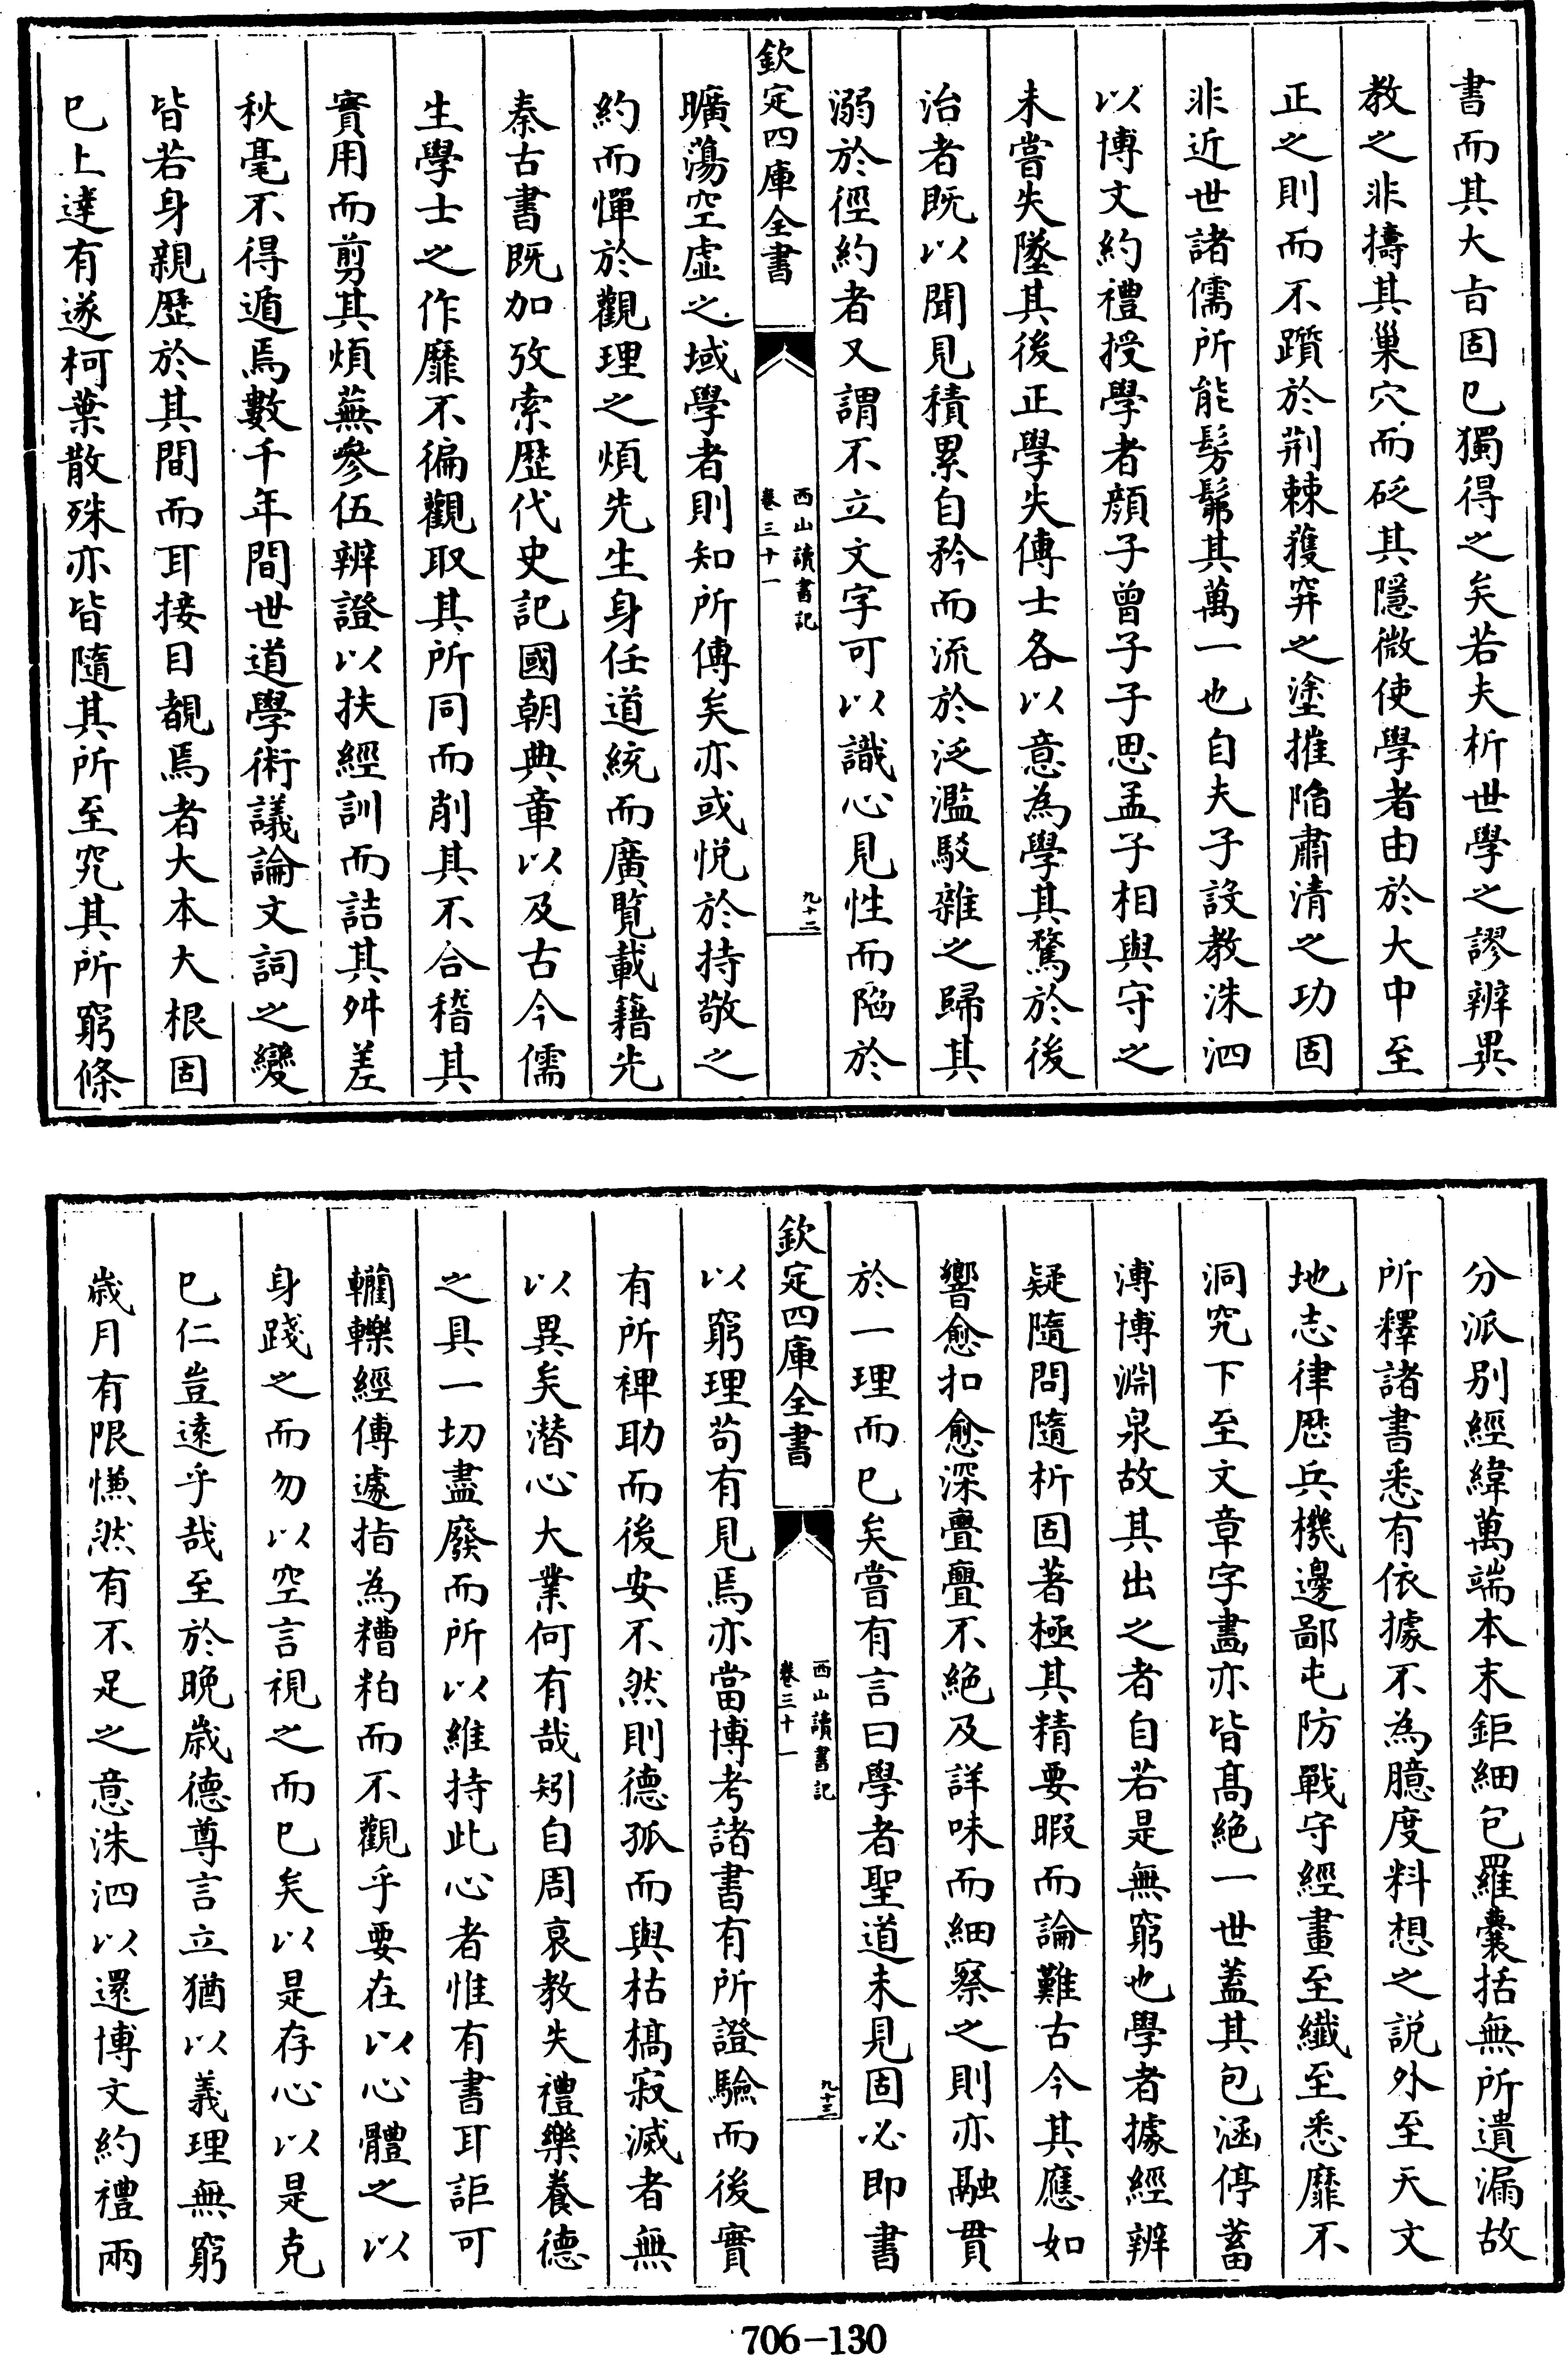 書而其大㫖固已獨得之矣若夫析世學之謬辨異
教之非擣其巢穴而砭其隱微使學者由於大中至
正之則而不躓於荆棘蒦穽之塗摧陷肅清之功固
非近世諸儒所能髣髴其萬一也自夫子設教洙泗
以博文約禮授學者顔子曾子子思孟子相與守之
未嘗失墜其後正學失傳士各以意為學其騖於後
治者既以聞見積累自矜而流於泛濫駁雜之歸其
溺於徑約者又謂不立文字可以識心見性而陷於
欽定四庫全書
西山讀書記
卷三十一
九十二
曠蕩空虚之域學者則知所傳矣亦或悦於持敬之
約而憚於觀理之煩先生身任道統而廣覽載籍先
秦古書既加攷索歴代史記國朝典章以及古今儒
生學士之作靡不徧觀取其所同而削其不合稽其
實用而剪其煩蕪參伍辨證以扶經訓而詰其舛差
秋毫不得遁焉數千年間世道學術議論文詞之變
皆若身親歴於其間而耳接目覩焉者大本大根固
已上達有遂柯葉散殊亦皆隨其所至究其所窮條
分派别經緯萬端本末鉅細包羅囊括無所遺漏故
所釋諸書悉有依據不為臆度料想之説外至天文
地志律厯兵機邊鄙屯防戰守經畫至纖至悉靡不
洞究下至文章字畫亦皆髙絶一世蓋其包涵停蓄
溥博淵泉故其出之者自若是無窮也學者據經辨
疑隨問隨析固著極其精要暇而論難古今其應如
響愈扣愈深亹亹不絶及詳味而細察之則亦融貫
於一理而已矣嘗有言曰學者聖道未見固必即書
欽定四庫全書
西山讀書記
卷三十一
九十三
以窮理苟有見焉亦當博考諸書有所證驗而後實
有所裨助而後安不然則德孤而與枯槁寂滅者無
以異矣潜心大業何有哉矧自周衰教失禮樂養德
之具一切盡廢而所以維持此心者惟有書耳詎可
轥轢經傳遽指為糟粕而不觀乎要在以心體之以
身踐之而勿以空言視之而已矣以是存心以是克
已仁豈逺乎哉至於晚歳德尊言立猶以義理無窮
歳月有限慊然有不足之意洙泗以還博文約禮兩
706-130